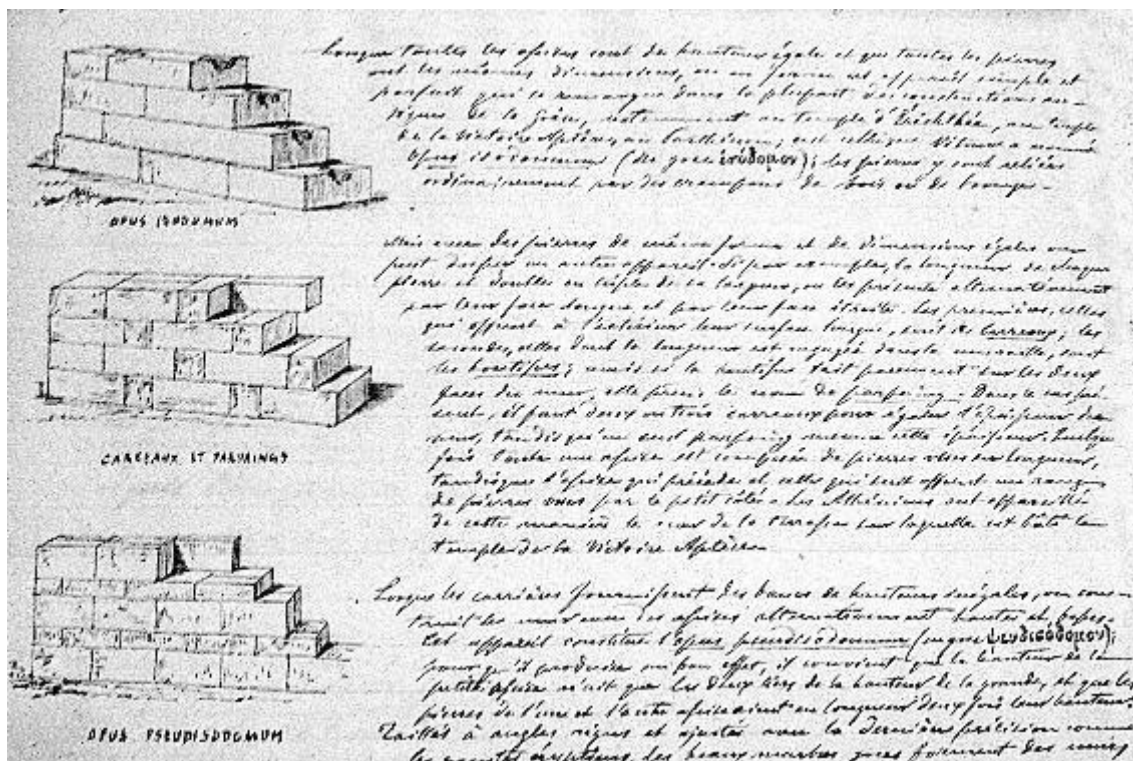 Lorsque toutes les assises sont de hauteur égale et que toutes les pierres
ont les mêmes dimensions, on en forme un appareil simple et
parfait qui se remarque dans la plupart des constructions an-
tiques de la Grèce, notamment au temple d'Érichthée, au temple
de la Victoire Aptère, au Parthénon; Vitruve a nommé
opus isodomum (du grec ισόδομον); les pierres y sont reliées
ordinairement par des crampons de bois ou de bronze.
OPUS ISODOMUM
Mais avec des pierres de même forme et de dimensions égales on
peut disposer un autre appareil. Si par exemple, la longueur de chaque
pierre est double ou triple de la largeur, on les présente alternativement
par leur face longue et par leur face étroite. Les premières, celles
qui offrent à l'extérieur leur surface longue, sont les carreaux; les
secondes, celles dont la longueur est engagée dans la muraille, sont
les boutisses; mais si la boutisse fait parement sur les deux
faces du mur, elle prend le nom de parpaing. Dans le cas pré-
sent, il faut deux ou trois carreaux pour égaler l'épaisseur du
mur, tandis qu'un seul parpaing mesure cette épaisseur. Quelque
fois toute une assise est composée de pierres vues en longueur,
tandis que l'assise qui précède et celle qui suit offrent une rangée
de pierres vues par le petit côté. Les Athéniens ont appareillé
de cette manière le mur de la terrasse sur laquelle est bâti le
temple de la Victoire Aptère.
CARREAUX ET PARPAINGS
Lorsque les carrières fournissent des bancs de hauteurs inégales, on cons-
truit les murs avec des assises alternativement hautes et basses.
Cet appareil constitue l'opus pseudisodomum (en grec ψευδισόδομον);
pour qu'il produise un bon effet, il convient que la hauteur de la
petite assise n'ait que les deux tiers de la hauteur de la grande, et que les
pierres de l'une et l'autre assise aient en longueur deux fois leur hauteur.
Taillés à angles vigus et ajustés avec la dernière précision comme
les granits égyptiens, les beaux marbres grecs forment des murs
OPUS PSEUDISODOMUM